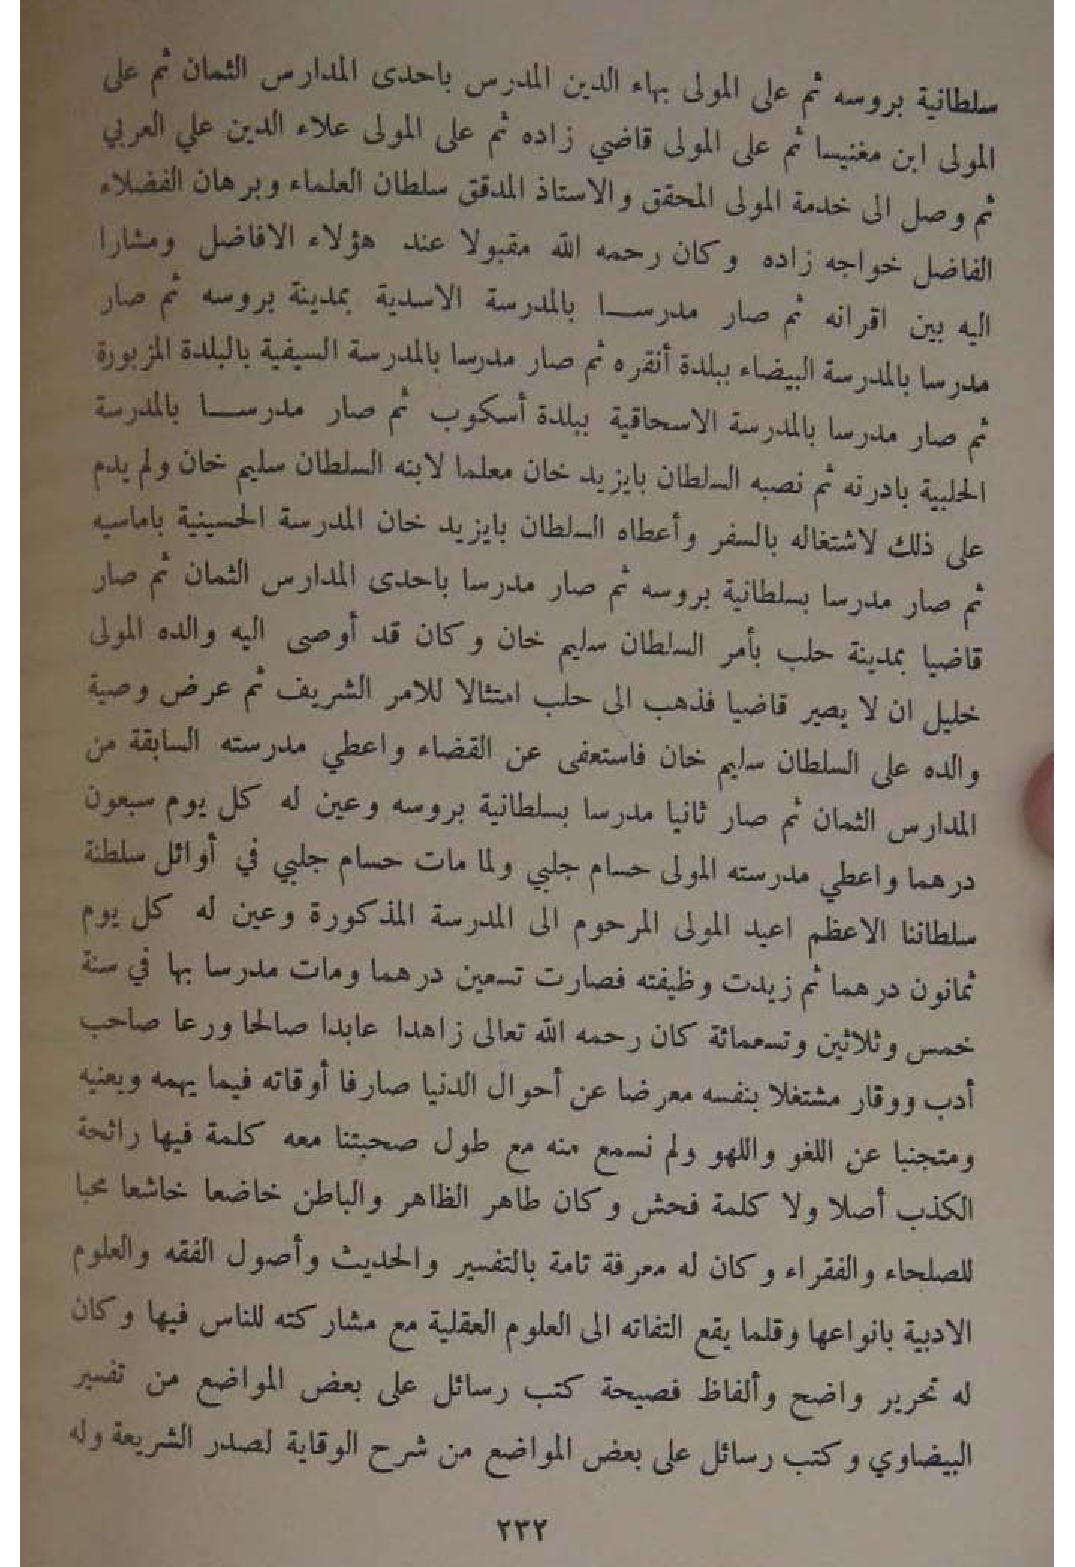 سلطانية بروسه ثم على المولى بهاء الدين المدرس باحدى المدارس الثمان ثم على
المولى ابن مغنيسا ثم على المولى قاضي زاده ثم على المولى علاء الدين علي العربي
ثم وصل الى خدمة المولى المحقق والاستاذ المدقق سلطان العلماء وبرهان الفضلاء
الفاضل خواجه زاده وكان رحمه الله مقبولا عند هؤلاء الافاضل ومشارا
اليه بين اقرانه ثم صار مدرسا بالمدرسة الاسدية بمدينة بروسه ثم صار
مدرسا بالمدرسة البيضاء ببلدة أنقره ثم صار مدرسا بالمدرسة السيفية بالبلدة المزبورة
ثم صار مدرسا بالمدرسة الاسحاقية ببلدة أسكوب ثم صار مدرسا بالمدرسة
الحلبية بادرنه ثم نصبه السلطان بايزيد خان معلما لابنه السلطان سليم خان ولم يدم
على ذلك لاشتغاله بالسفر وأعطاه السلطان بايزيد خان المدرسة الحسينية باماسيه
ثم صار مدرسا بسلطانية بروسه ثم صار مدرسا باحدى المدارس الثمان ثم صار
قاضيا بمدينة حلب بأمر السلطان سليم خان وكان قد أوصى اليه والده المولى
خليل ان لا يصير قاضيا فذهب الى حلب امتثالا للامر الشريف ثم عرض وصية
والده على السلطان سليم خان فاستعفى عن القضاء واعطي مدرسته السابقة من
المدارس الثمان ثم صار ثانيا مدرسا بسلطانية بروسه وعين له كل يوم سبعون
درهما واعطي مدرسته المولى حسام جلبي ولما مات حسام جلبي في أوائل سلطنة
سلطاننا الاعظم اعيد المولى المرحوم الى المدرسة المذكورة وعين له كل يوم
ثمانون درهما ثم زيدت وظيفته فصارت تسعين درهما ومات مدرسا بها في سنة
خمس وثلاثين وتسعمائة كان رحمه الله تعالى زاهدا عابدا صالحا ورعا صاحب
أدب ووقار مشتغلا بنفسه معرضا عن أحوال الدنيا صارفا أوقاته فيما يهمه ويعنيه
ومتجنبا عن اللغو واللهو ولم نسمع منه مع طول صحبتنا معه كلمة فيها رائحة
الكذب أصلا ولا كلمة فحش وكان طاهر الظاهر والباطن خاضعا خاشعا محبا
للصلحاء والفقراء وكان له معرفة تامة بالتفسير والحديث وأصول الفقه والعلوم
الادبية بانواعها وقلما يقع التفاته الى العلوم العقلية مع مشاركته للناس فيها وكان
له تحرير واضح وألفاظ فصيحة كتب رسائل على بعض المواضع من تفسير
البيضاوي وكتب رسائل على بعض المواضع من شرح الوقاية لصدر الشريعة وله
٢٣٢